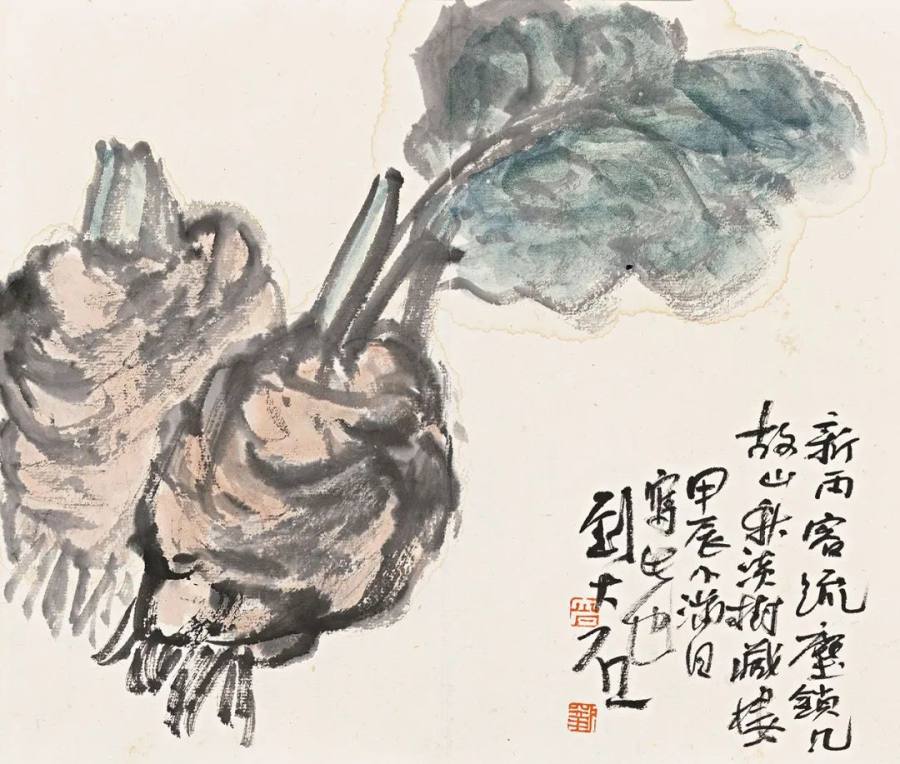 新雨客流塵鎖几
故山秋淡樹減樓
甲辰小滿日
寫生也
劉大
劉